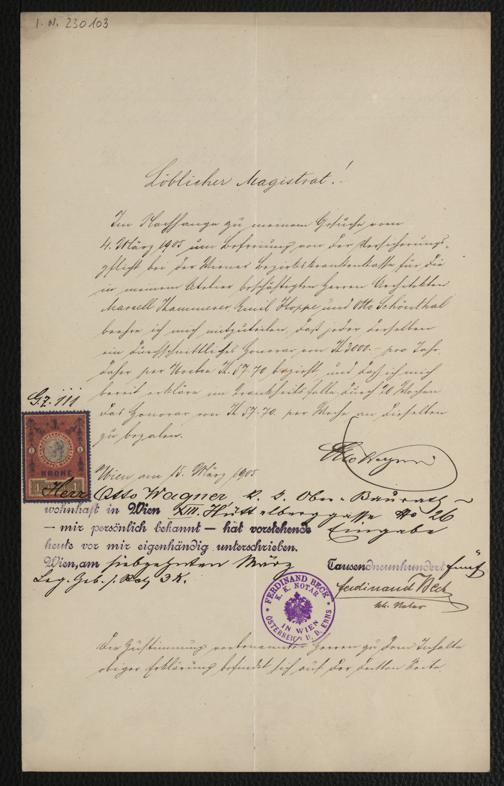 I. N. 230103
Löblicher Magistrat!
Im Nachhange zu meinem Gesuche vom
4. März 1905 um Befreiung von der Versicherungs-
pflicht bei der Wiener Bezirkskrankenkasse für die
in meinem Atelier beschäftigten Herren Architekten
Marcell Kammerer, Emil Hoppe und Otto Schönthal
beehre ich mich mitzuteilen, daß jeder derselben
ein durchschnittliches Honorar von K 3000.- pro Jahr,
daher per Woche K. 57.70 bezieht und daß ich mich
bereit erkläre im Krankheitsfalle durch 20 Wochen
das Honorar von K 57.70. per Woche an dieselben
zu bezahlen.
G.Z. 111
Otto Wagner
Wien am 15. März 1905
1 1
KRONE
Herr Otto Wagner k. k. Ober-Baurath
wohnhaft in Wien XIII. Hüttelberggasse No 26
— mir persönlich bekannt — hat vorstehende Eingabe
heute vor mir eigenhändig unterschrieben.
Wien, am siebzehnten März Tausendneunhundert fünf
Leg. Geb. s. Rat. 3 K.
FERDINAND BECK
K. K. NOTAR
IN WIEN
ÖSTERREICH U. D. ENNS
Ferdinand Beck
kk. Notar
Die Zustimmung vorbenannter Herren zu dem Inhalte
obiger Erklärung befindet sich auf der dritten Seite